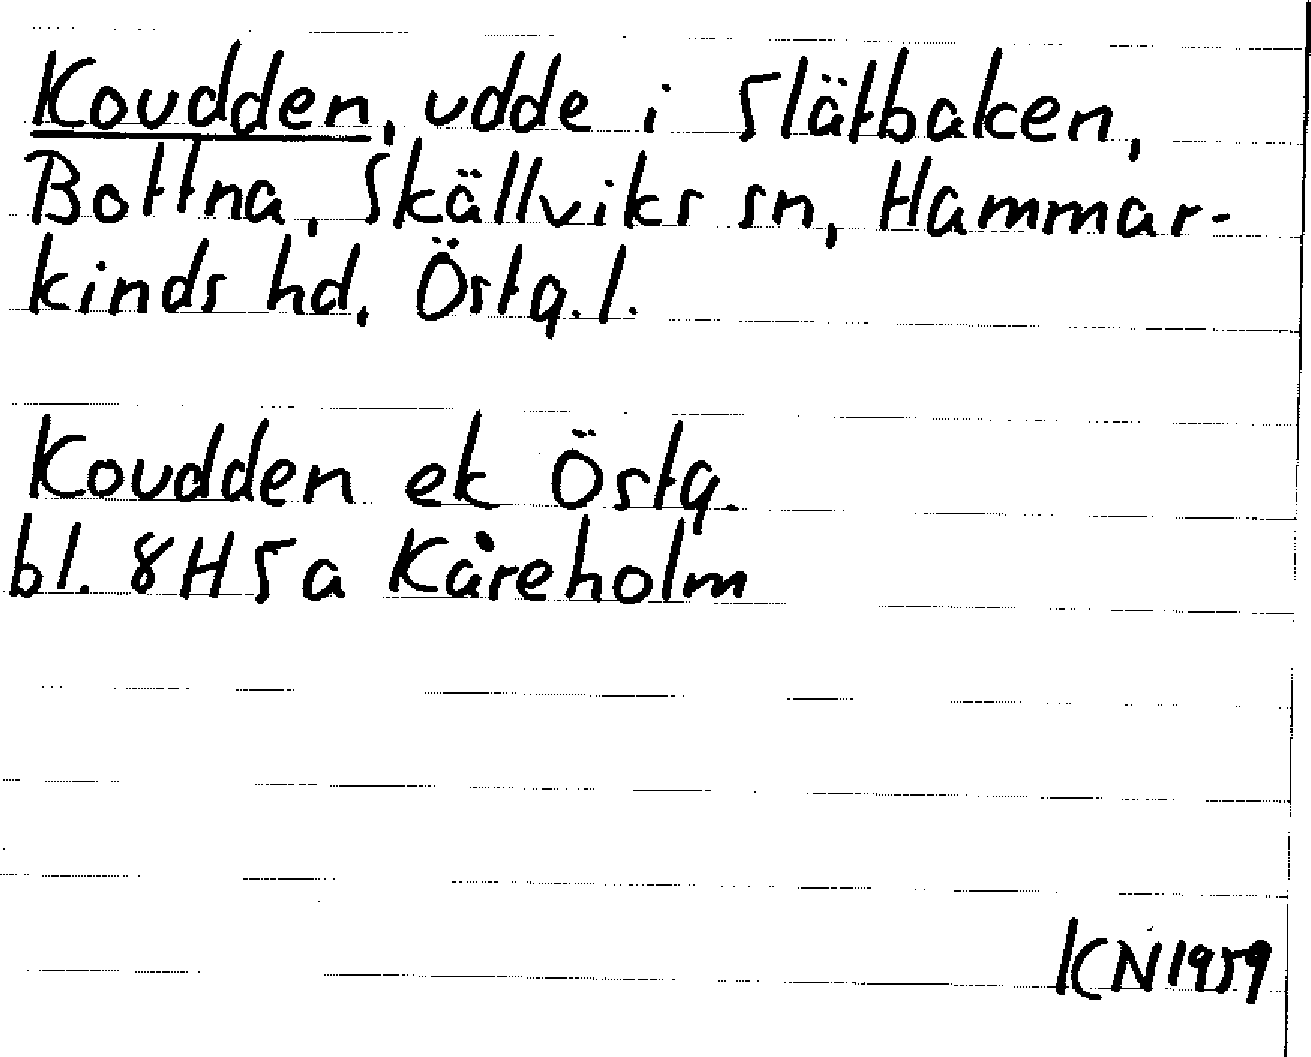 Koudden, udde i Slätbaken,
Bottna, Skällviks sn, Hammar-
kinds hd, Östg. l.
Koudden ek Östg.
bl. 8H5a Kåreholm
KN1959